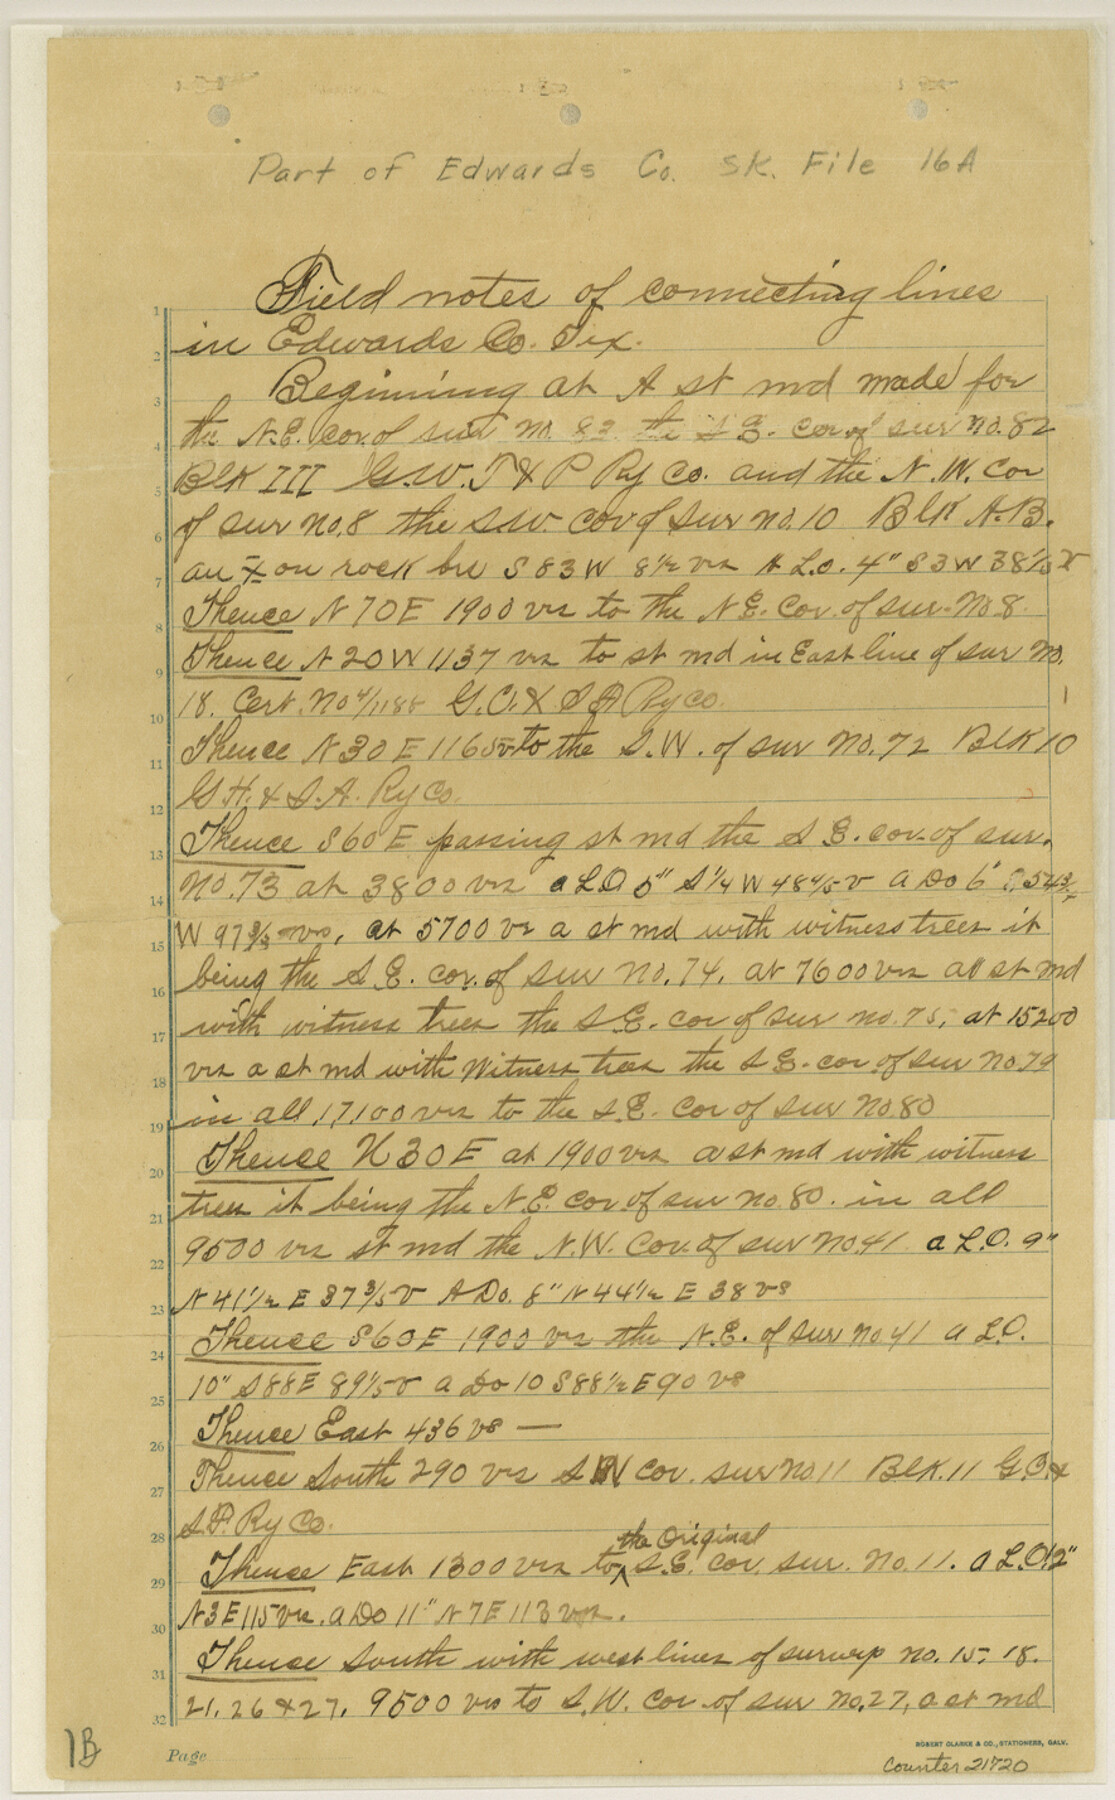 Part of Edwards Co. Sk. File 16A
Field notes of connecting lines
in Edwards Co. Tex.
Begining at A st md made for
the N.E. cor. of sur no. 83 the S E. cor of sur no. 82
Blk III G.W.T & P Ry Co. and the N.W. Cor
of sur no. 8 the S.W. cor of sur no. 10 Blk A.B.
an X on rock brs S 83 W 8 1/2 vrs A L.O. 4" S 3 W 38 1/3 v
Thence N 70 E 1900 vrs to the N E. Cor. of sur. No 8.
Thence N 20 W 1137 vrs to st md in East line of sur No.
18. Cert. No 4/1188 G.C. & S F Ry Co.
Thence N 30 E 1165 vr to the S.W. of sur No. 72 Blk 10
G H. & S. A. Ry Co.
Thence S 60 E passing st md the S E. cor. of sur.
No. 73 at 3800 vrs a L O 5" S 1/4 W 48 4/5 v a Do 6"
W 97 3/5 vrs, at 5700 vr a st md with witness trees it
being the S E. cor. of sur No. 74. at 7600 vrs a st md
with witness trees the S E. cor of sur no. 75, at 15200
vrs a st md with Witness trees the S E. cor of sur No 79
in all 17100 vrs to the S.E. Cor of sur No 80
Thence N 30 E at 1900 vrs a st md with witness
trees it being the N.E. cor. of sur no. 80. in all
9500 vrs st md the N.W. Cor. of sur No. 41 a L.O. 9"
N 41 1/2 E 37 3/5 v A Do. 8" N 44 1/2 E 38 vs
Thence S 60 E 1900 vrs the N.E. of sur No 41 a L.O.
10" S 88 E 89 1/5 v a Do 10 S 88 1/2 E 90 vs
Thence East 436 vs —
Thence South 290 vrs S W Cor. sur No 11 Blk. 11 G.C. &
S.F. Ry Co.
the Original
Thence East 1300 vrs to ^ S.E. Cor. sur. No. 11. a L.O. 12"
N 3 E 115 vrs. a Do 11" N 7 E 113 vrs.
Thence South with west lines of survep no. 15- 18.
21. 26 & 27. 9500 vrs to S.W. Cor. of sur No. 27, a st md
1
2
3
4
5
6
7
8
9
10
11
12
13
14
15
16
17
18
19
20
21
22
23
24
25
26
27
28
29
30
31
32
1B
Page
ROBERT CLARKE & CO., STATIONERS, GALV.
Counter 21720